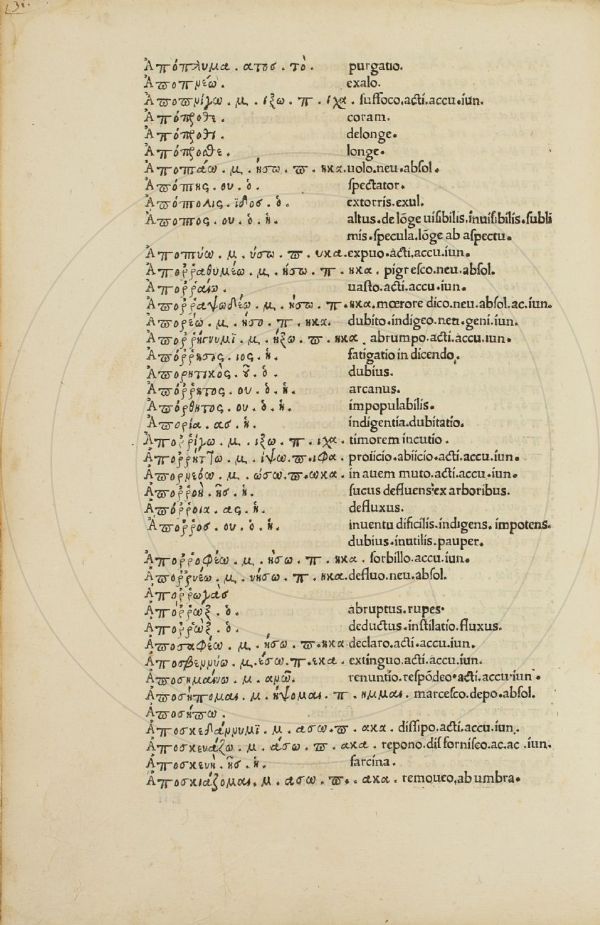 Ἀπόπλυμα . ατοσ . τὸ. purgatio.
Ἀποπνέω. exalo.
Ἀποπνίγω . μ . ιξω . π . ιχα . suffoco.acti.accu.iun.
Ἀπόπροθε. coram.
Ἀπόπροθι. delonge.
Ἀπόπροσθε. longe.
Ἀποπτάω . μ . ήσω . π . ηκα. uolo.neu.absol.
Ἀπόπτης . ου . ὁ. spectator.
Ἀπόπολις . ιδοσ . ὁ. extorris.exul.
Ἄποπτος . ου . ὁ . ἡ. altus.de lōge uisibilis.inuisibilis.subli
mis.specula.lōge ab aspectu.
Ἀποπτύω . μ . ύσω . π . υκα. expuo.acti.accu.iun.
Ἀπορῥαθυμέω . μ . ήσω . π . ηκα . pigresco.neu.absol.
Ἀπορῥαίω. uasto.acti.accu.iun.
Ἀπορῥαψωδέω . μ . ήσω . π . ηκα. mœrore dico.neu.absol.ac.iun.
Ἀπορέω . μ . ήσο . π . ηκα. dubito.indigeo.neu.geni.iun.
Ἀπορῥήγνυμϊ . μ . ήξω . π . ηκα abrumpo.acti.accu.iun.
Ἀπόρῥησις . ιος . ἡ. fatigatio in dicendo.
Ἀπορητικὸς . οῦ . ὁ. dubius.
Ἀπόρῥητος . ου . ὁ . ἡ. arcanus.
Ἀπόρθητος . ου . ὁ . ἡ. impopulabilis.
Ἀπορία . ασ . ἡ. indigentia.dubitatio.
Ἀπορῥιγω . μ . ιξω . π . ιχα . timorem incutio .
Ἀπορῥίπτω . μ . ιψω . π . ιφα . proiicio.abiicio.acti.accu.iun.
Ἀπορνεόω . μ . ώσω . π . ωκα . in auem muto.acti.accu.iun.
Ἀπορῥοὴ . ῆσ . ἡ. sucus defluens ex arboribus.
Ἀπόρῥοια . ας . ἡ. defluxus.
Ἄπορῥος . ου . ὁ . ἡ. inuentu dificilis.indigens.impotens.
dubius.inutilis.pauper.
Ἀπορῥοφέω . μ . ήσω . π . ηκα . sorbillo.accu.iun.
Ἀπορῥυέω . μ . υήσω . π . ηκα. defluo.neu.absol.
Ἀπορῥωγὰσ
Ἀπορῥὼξ . ὁ. abruptus.rupes.
Ἀπορῥὼξ . ὁ. deductus.instilatio.fluxus.
Ἀποσαφέω . μ . ήσω . π . ηκα declaro.acti.accu.iun.
Ἀποσβεννύω . μ . έσω . π . εκα . extinguo.acti.accu.iun.
Ἀποσημαίνω . μ . ανῶ. renuntio.respōdeo.acti.accu.iun.
Ἀποσήπομαι . μ . ήψομαι . π . ημμαι . marcesco.depo.absol.
Ἀποσήπω .
Ἀποσκεδάννυμϊ . μ . ασω . π . ακα . dissipo.acti.accu.iun.
Ἀποσκευάζω . μ . άσω . π . ακα . repono.disfornisco.ac.ac .iun.
Ἀποσκευὴ . ῆσ . ἡ. sarcina.
Ἀποσκιάζομαι . μ . ασω . π . ακα . remoueo,ab umbra.